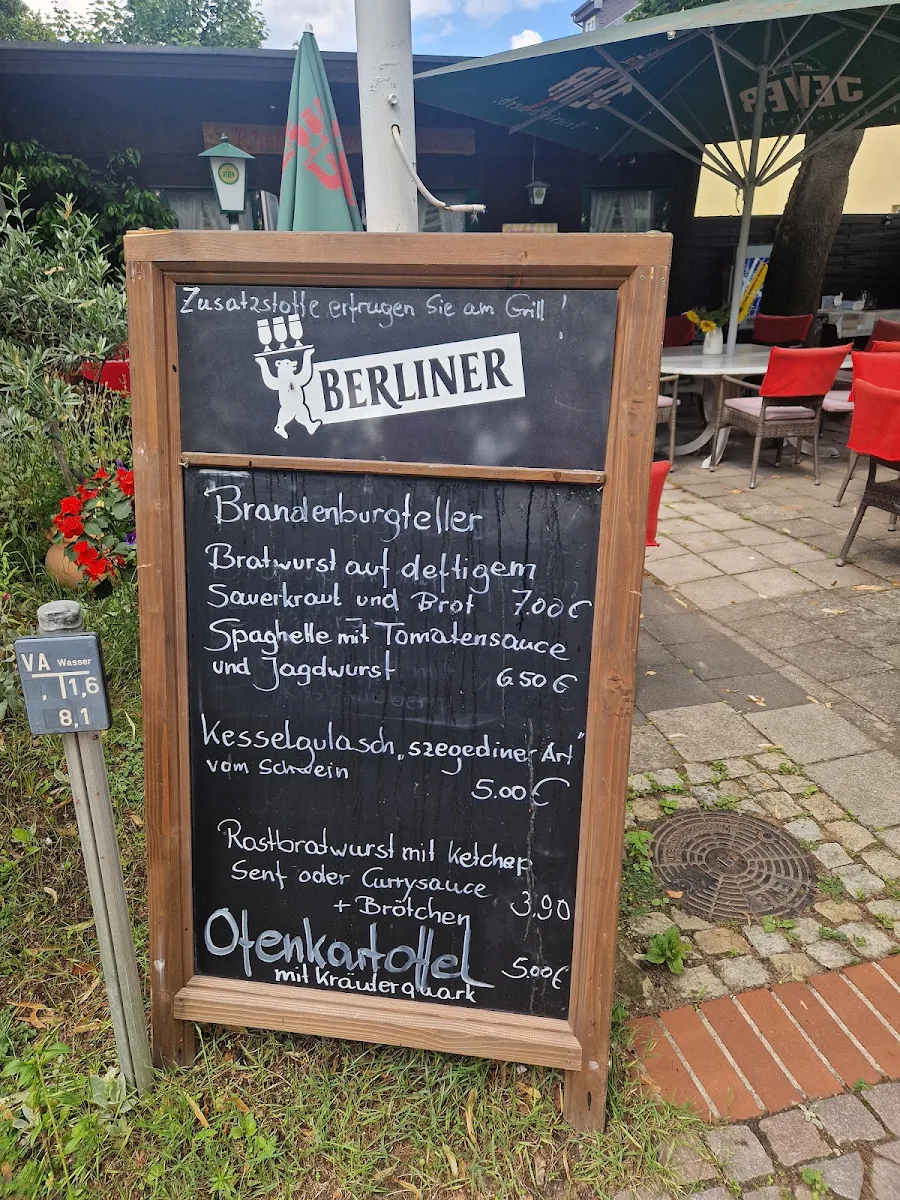 JEVER
JEVER
Zusatzstoffe erfragen Sie am Grill!
BERLINER
Brandenburgteller
Bratwurst auf deftigem
Sauerkraut und Brot 7.00 €
Spaghette mit Tomatensauce
und Jagdwurst 6.50 €
Kesselgulasch „szegediner Art"
vom Schwein
5.00 €
Rostbratwurst mit Ketchap
Senf oder Currysauce
+ Brötchen 3.90
Ofenkartoffel
mit Kräuterquark 5.00€
VA Wasser
1,6
8,1